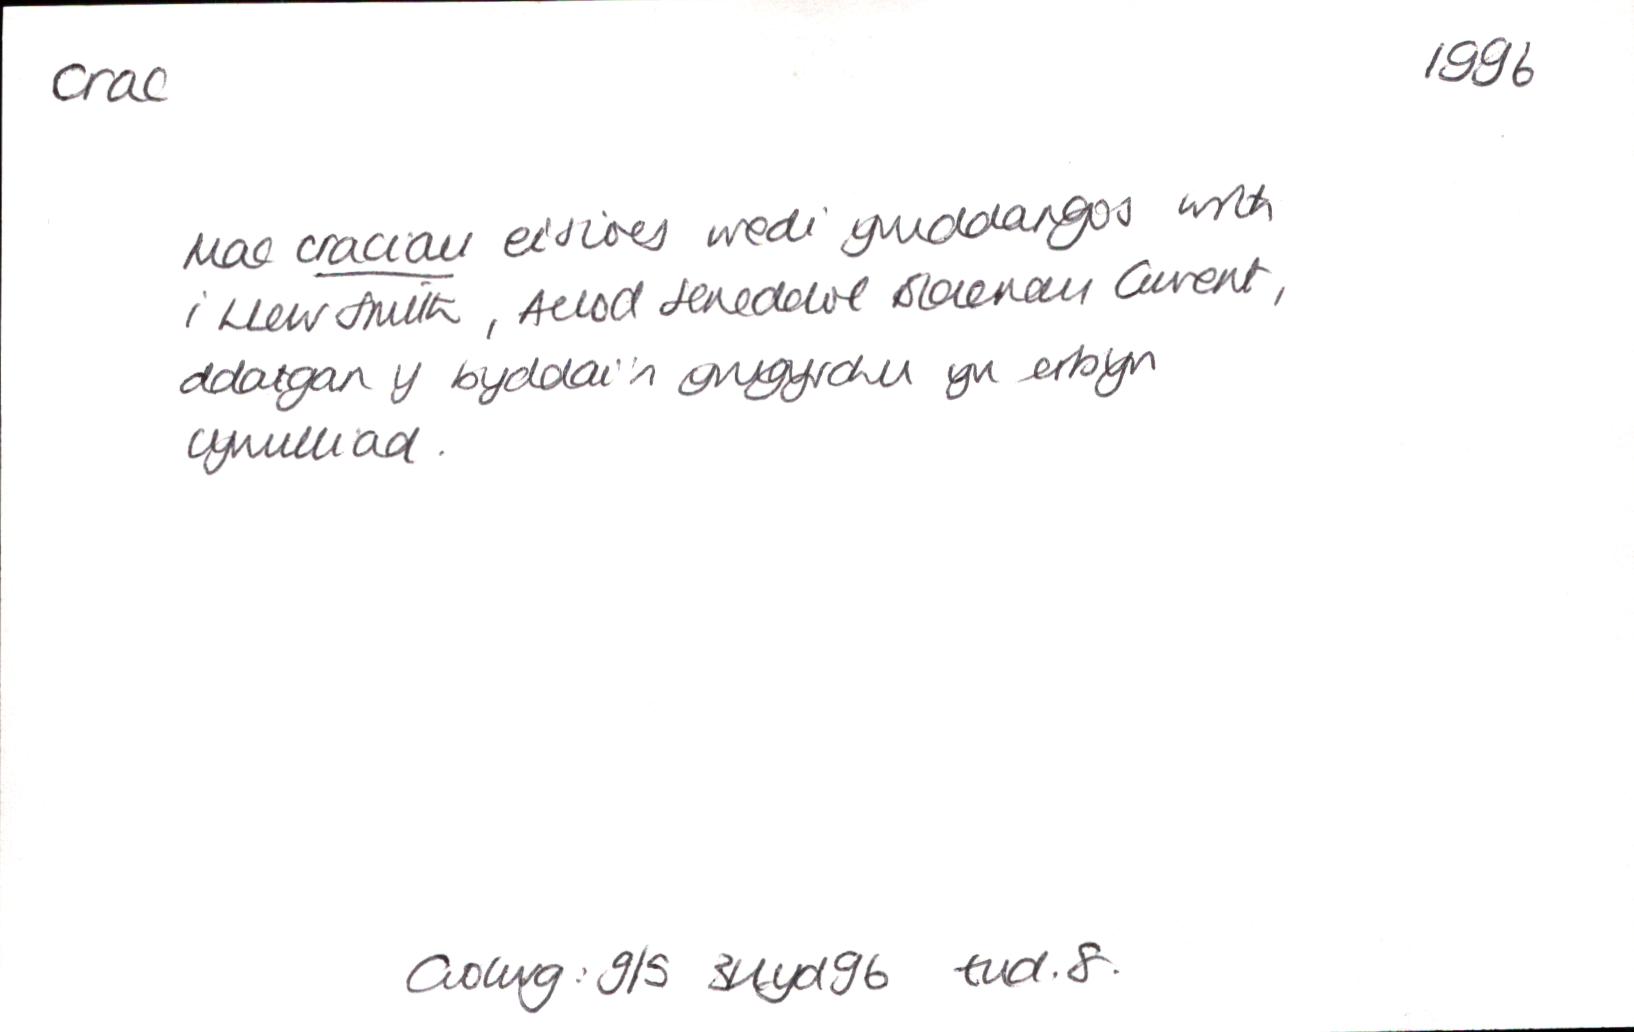 crac
1996
Mae craciau eisioes wedi ymddangos wrth
i Llew Smith, Aelod Seneddol Blaenau Gwent,
ddatgan y byddai'n ymgyrchu yn erbyn
cynulliad.
Golwg: 9/5 3Hyd96 tud. 8.